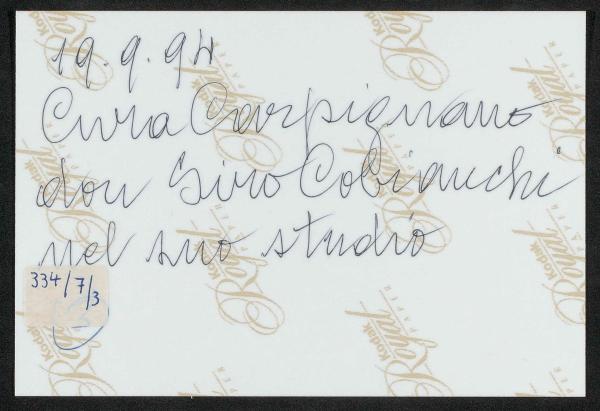 19.9.94
Cura Carpignano
don Siro Cobianchi
nel suo studio
334/7/3
Kodak
Royal
PAPER